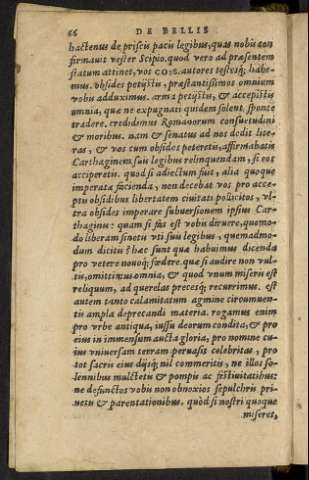 66 DE BELLIS
hactenus de priscis pacis legibus, quas nobis con
firmauit vester Scipio. quod vero ad præsentem
statum attinet, vos autores testesq; habe-
mus. obsides petijstis, præstantissimos omnium
vobis adduximus. arma petijstis, & accepistis
omnia, quæ ne expugnati quidem solent sponte
tradere. credidimus Romanorum consuetudini
& moribus. nam & senatus ad nos dedit lite-
ras, & vos cum obsides peteretis, affirmabatis
Carthaginem sui legibus relinquendam, si eos
acciperetis. quod si adiectum fuit, alia quoque
imperata facienda, non decebat vos pro acce-
ptis obsidibus libertatem ciuitati polliceri, vl-
tra obsides imperare subuersionem ipsius Car-
thaginis: quam si fas est vobis diruere, quomo-
do liberam sinetis vti suis legibus, quemadmo-
dum dicitis? hæc sunt quæ habuimus dicenda
pro vetere nouoq; fœdere. quæ si audire non vul-
tis, omittimus omnia, & quod vnum miseris est
reliquum, ad querelas precesq; recurrimus. est
autem tanto calamitatum agmine circumuen-
tis ampla deprecandi materia. rogamus enim
pro vrbe antiqua, iussu deorum condita, & pro
eius in immensum aucta gloria, pro nomine cu-
ius vniuersam terram peruasit celebritas, pro
tot sacris eius dijsq; nil commeritis, ne illos so-
lennibus mulctetis & pompis ac festiuitatibus:
ne defunctos vobis non obnoxios sepulchris pri-
uetis & parentationibus. quòd si nostri quoque
miseret,